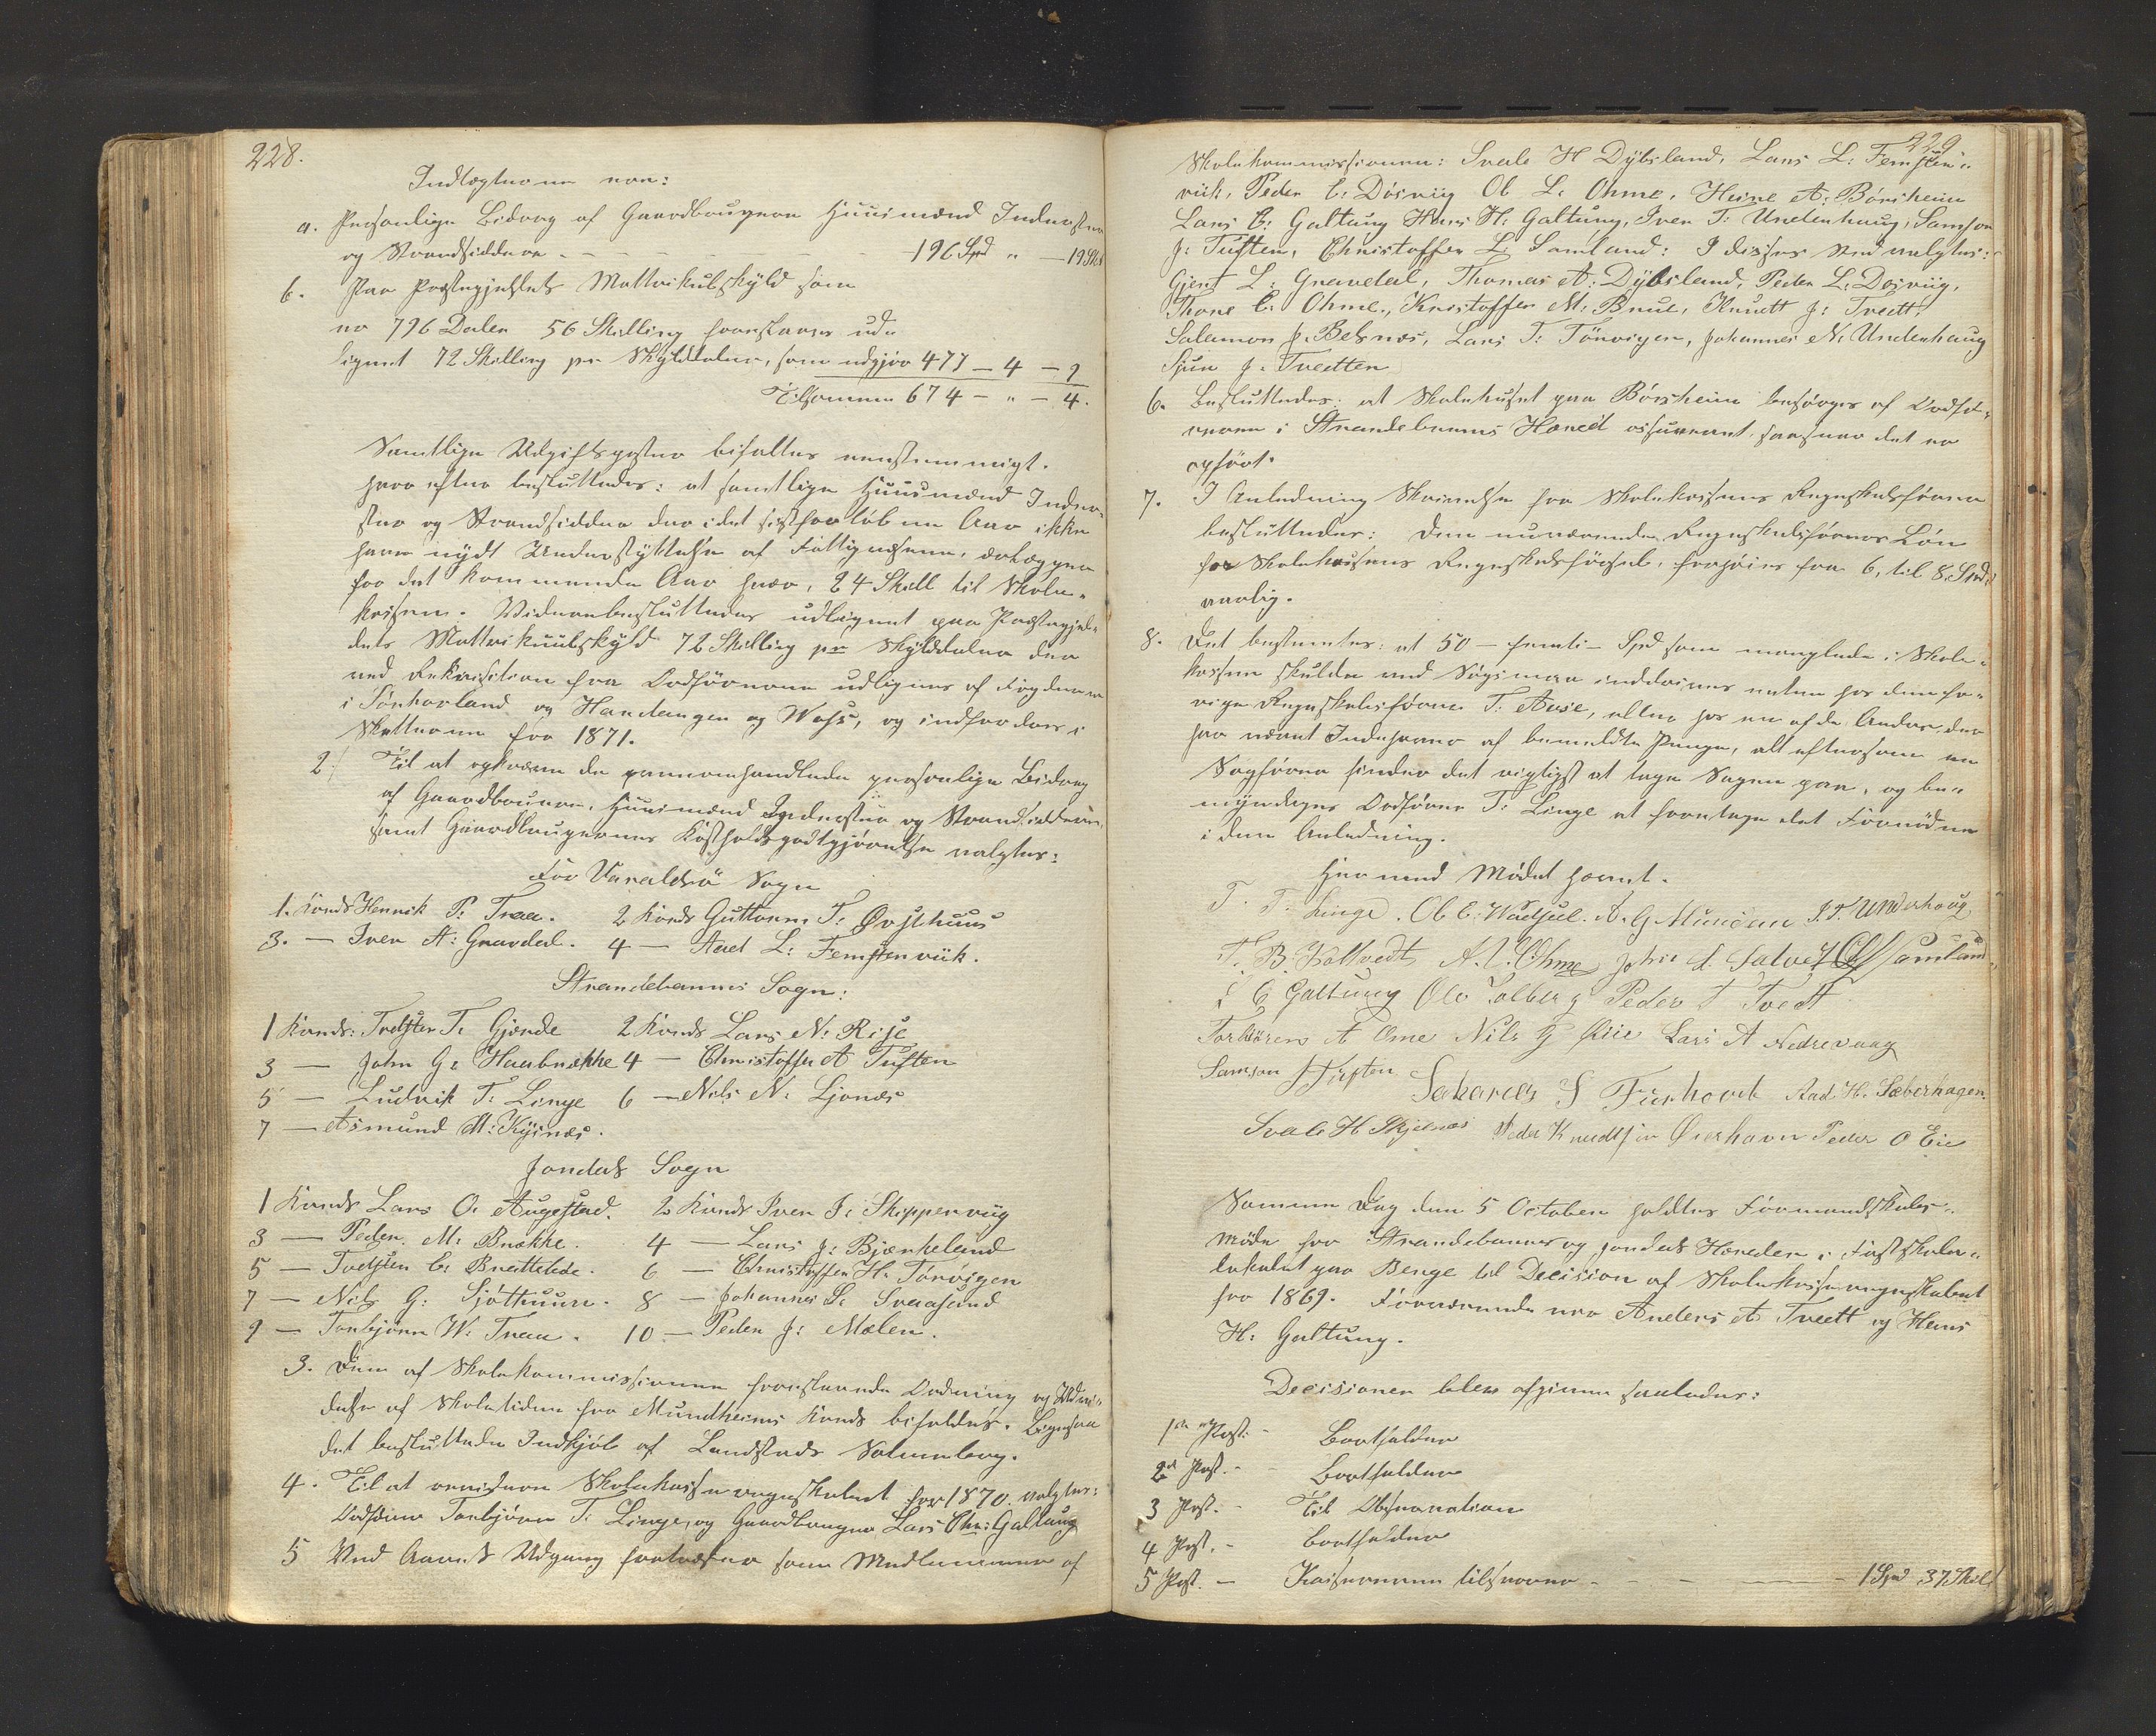 228.
Indtægterne ere:
a. Personlige Bidrag af Gaardbrugere Huusmænd Inderster
og Strandsiddere - - - - - 196 Spd " - 19 Sk
b. Paa Præstegjeldets Matrikulskyld som
er 796 Daler 56 Skilling foreslaaes ud-
lignet 72 Skilling pr Skylddaler, som udgjør 477 - 4 - 9
Tilsammen 674 - " - 4.
Samtlige Udgiftsposter bifaltes eenstemmigt.
Hvorefter besluttedes: at samtlige Huusmænd Inder-
ster og Strandsiddere der i det sidstforløbne Aar ikke
have nydt Understyttelse af Fattigvæsenet, erlægger
for det kommende Aar hver, 24 Skill til Skole-
kassen. Videre besluttedes udlignet paa Præstegjel-
dets Matrikuulskyld 72 Skilling pr Skylddaler der
ved Rekvisition fra Ordførerne udlignes af Fogderne
i Sønhorland og Hardanger og Woss, og indfordres i
Skatterne for 1871.
2/ Til at opkræve de personlige Bidrag
af Gaardbrugere, Huusmænd Inderster og Strandsiddere,
samt Gaardbrugernes Kostholdsgodtgjørelse valgtes:
For Varaldsø Sogn
1. Kreds Henrik P: Traa. 2 Kreds Guttorm T: Øvsthuus
3. - Iver A: Gravdal. 4 - Aad L: Femstenviik.
Strandebarms Sogn:
1 Kreds: Torsten T. Gjerde 2 Kreds Lars N: Rise
3 - John G: Haabrekke 4 - Christoffer A Tuften
5 - Ludvik T: Linge 6 - Nils N: Ljones
7 - Asmund M: Kysnæs.
Jondals Sogn
1 Kreds Lars O. Augestad. 2 Kreds Iver I: Skippervig
3 - Peder M: Brekke. 4 - Lars J: Bjerkeland
5 - Torsten C: Breittelede. 6 - Christoffer H: Tørvigen
7 - Nils G: Sjøthuun. 8 - Johannes S: Svaasand
9 - Torbjørn W: Traa. 10 - Peder J: Mælen.
3. Den af Skolekommissionen foreslaaede Ordning og Udvi-
delse af Skoletiden for Mundheims Kreds bifaldtes. Ligesaa
det besluttede Indkjøb af Landstads Salmebog.
4. Til at revidere Skolekasseregnskabet for 1870. valgtes:
Ordfører Torbjørn T: Linge, og Gaardbruger Lars Chr: Galtung
5 Ved Aarets Udgang fratræder som Medlemmer af
229
Skolekommissionen: Svale H Dybsland, Lars L: Femsten-
viik, Peder C: Dosviig Ob L: Ohme, Heine A: Børsheim
Lars C: Galtung Hans H: Galtung, Iver T: Underhaug, Samson
J: Tuften, Christoffer L: Samland: I disses Sted valgtes:
Gjert L: Gravdal, Thomas A: Dybsland, Peder L. Dosviig,
Thore C: Ohme, Kristoffer M: Bruu, Knudt J: Tvedt,
Salamon J. Belsnæs, Lars T: Tørvigen, Johannes N: Underhaug
Sjur J: Tvedten
6. Besluttedes: at Skolehuset paa Børsheim besørges af Ordfø-
reren i Strandebarms Hered assureret saasnart det er
opført.
7. I Anledning Skrivelse fra Skolekassens Regnskabsfører
besluttedes: Den nuværende Regnskabsførers Løn
for Skolekassens Regnskabsførsel, forhøies fra 6, til 8. Spd.
aarlig.
8. Det bestemtes: at 50 - femti - Spd som manglede i Skole-
kassen skulde ved Søgsmaal inddrives enten hos den for-
rige Regnskabsfører T. Aase, eller hos en af de Andre, der
har været Indehaver af bemeldte Penge, alt eftersom en
Sagfører finder det rigtigst at tage Sagen paa, og be-
myndiges Ordfører T: Linge at foretage det Fornødne
i den Anledning.
Hermed Mødet hævet.
T. T. Linge. Ob E: Wadsel. A. G Mundheim I. T. Underhoug
T. B. Koltvedt A. L. Ohme John A. Salvei C L Samland
L C Galtung Ole Solberg Peder T Tvedt
Torbiören A Ome Nils G Riie Lars A Nedrevaag
Samson J Tuften Sakarias S Fierhovik Aad H. Sæberhagen.
Svale H Skjelnæs Peder Knudtsen Øierhavn Peder O Eie
Samme Dag den 5 October holdtes Formandskabs-
møde for Strandebarms og Jondals Hereder i Fastskole-
lokalet paa Berge til Decision af Skolekasseregnskabet
for 1869. Fraværende var Anders A Tvedt og Hans
H: Galtung.
Decisionen blev afgiven saaledes:
1ste Post. - Bortfalder
2d Post. - Bortfalder
3 Post. - Til Observation
4 Post. - Bortfalder
5 Post. - Kassereren tilsvarer - - - 1 Spd 37 Skil